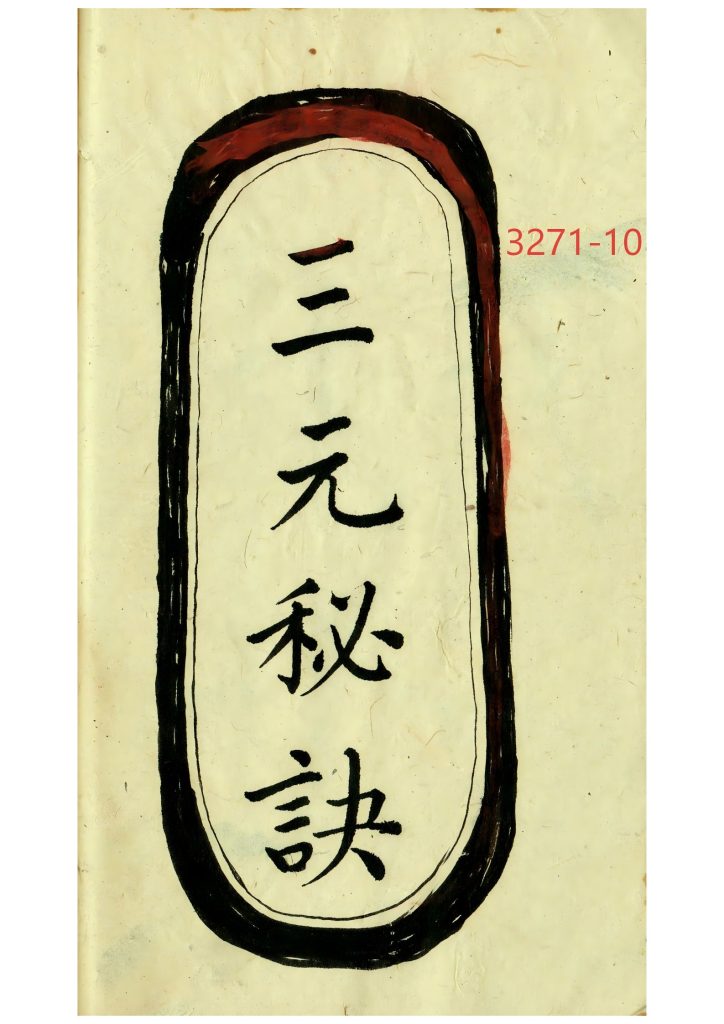 三元秘訣
3271-10